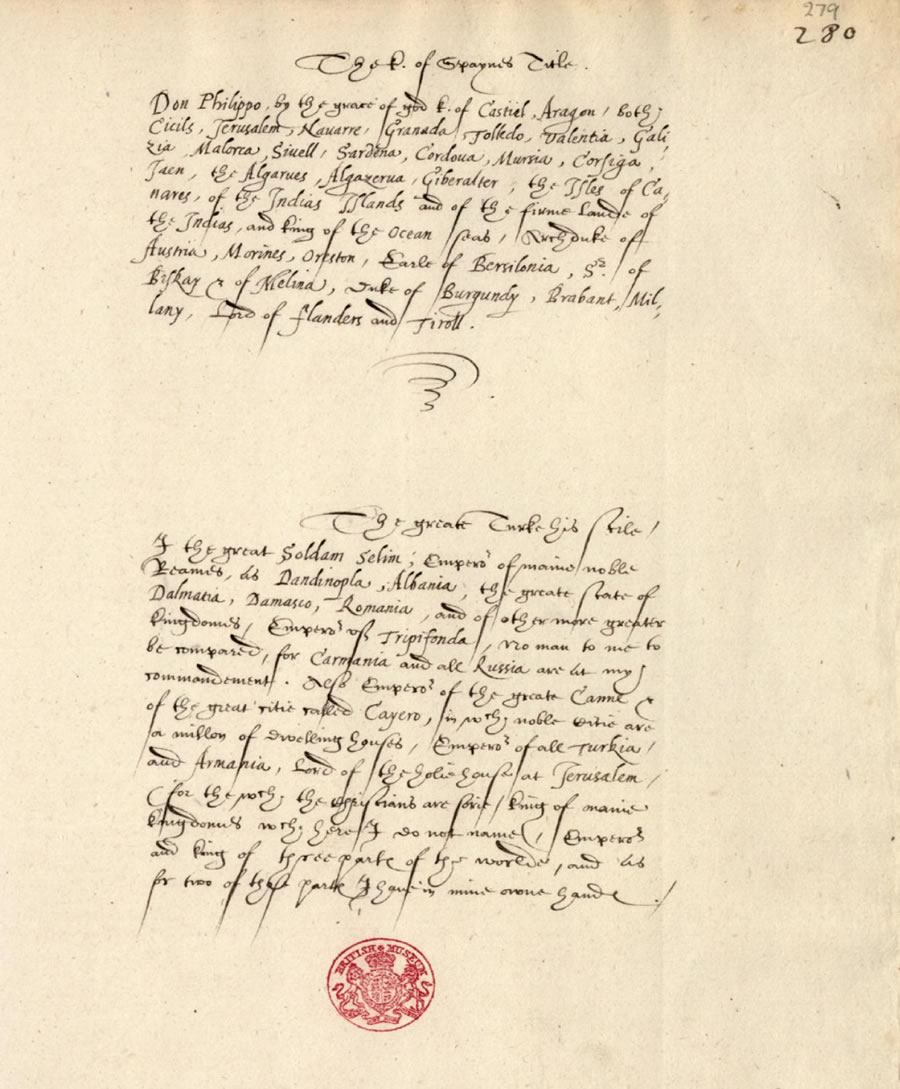 279
280
The k. of Spaynes Title.
Don Philippo, by the grace of god k. of Castiel, Aragon, both
Cicils, Jerusalem, Nauarre, Granada, Tolledo, Valentia, Gali
zia, Malorca, Siuell, Sardena, Cordoua, Mursia, Corsiga,
Jaen, the Algarues, Algazerua, Giberalter, the Isles of Ca,
nares, of the Indias Islands and of the firme Lande of
the Indias, and king of the Ocean seas, Archduke of
Austria, Morines, Oreston, Earle of Bersilonia, Sr. of
Biskay & of Melina, Duke of Burgundy, Brabant, Mil,
lany, Lord of flanders and Tiroll.
The greate Turke his stile,
I the great Soldam Selim, Emperor of manie noble
Reames, as Dandinopla, Albania, the greate state of
Dalmatia, Damasco, Romania, and of other more greater
kingdomes, Emperor of Tripifonda, No man to me to
be compared, for Carmania and all Russia are at my
commandement. Also Emperor of the greate Canne &
of the great citie called Cayero, in wch noble citie are
a millon of dwelling houses, Emperor of all Turkia,
and Armania, Lord of the holie house at Jerusalem,
(for the wch the christians are sorie, king of manie
kingdomes wch here I do not name), Emperor
and king of three parte of the worlde, and as
for two of these parte I haue in mine owne hande.
BRITISH MUSEUM